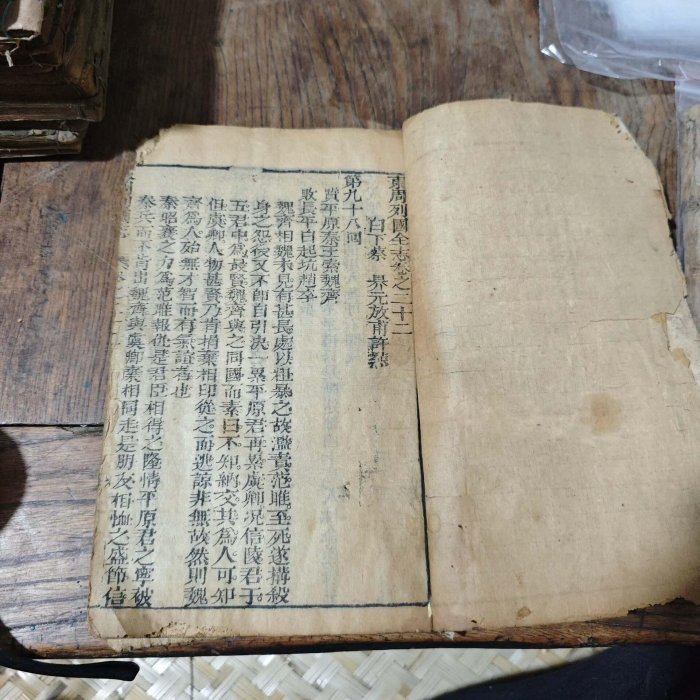 東周列國全志卷之二十二
白下蔡 元放甫評
第九十八回
質平原秦王索魏齊
敗長平白起坑趙卒
魏齊相魏未見有甚長處以粗暴之故濫責范雎至死遂搆殺
身之怨後又不即自引決一累平原君再累虞卿况信陵君于
五君中為最賢魏齊與之同國而素曰不知納交其為人可知
但虞卿人物甚賢乃肯捐棄相印從之而逃諒非無故然則魏
齊為人殆無才智而有氣誼者也
秦昭襄之力為范雎報仇是君臣相得之隆情平原君之寧被
秦兵而不肯出魏齊與虞卿棄相同走是朋友相恤之盛節信